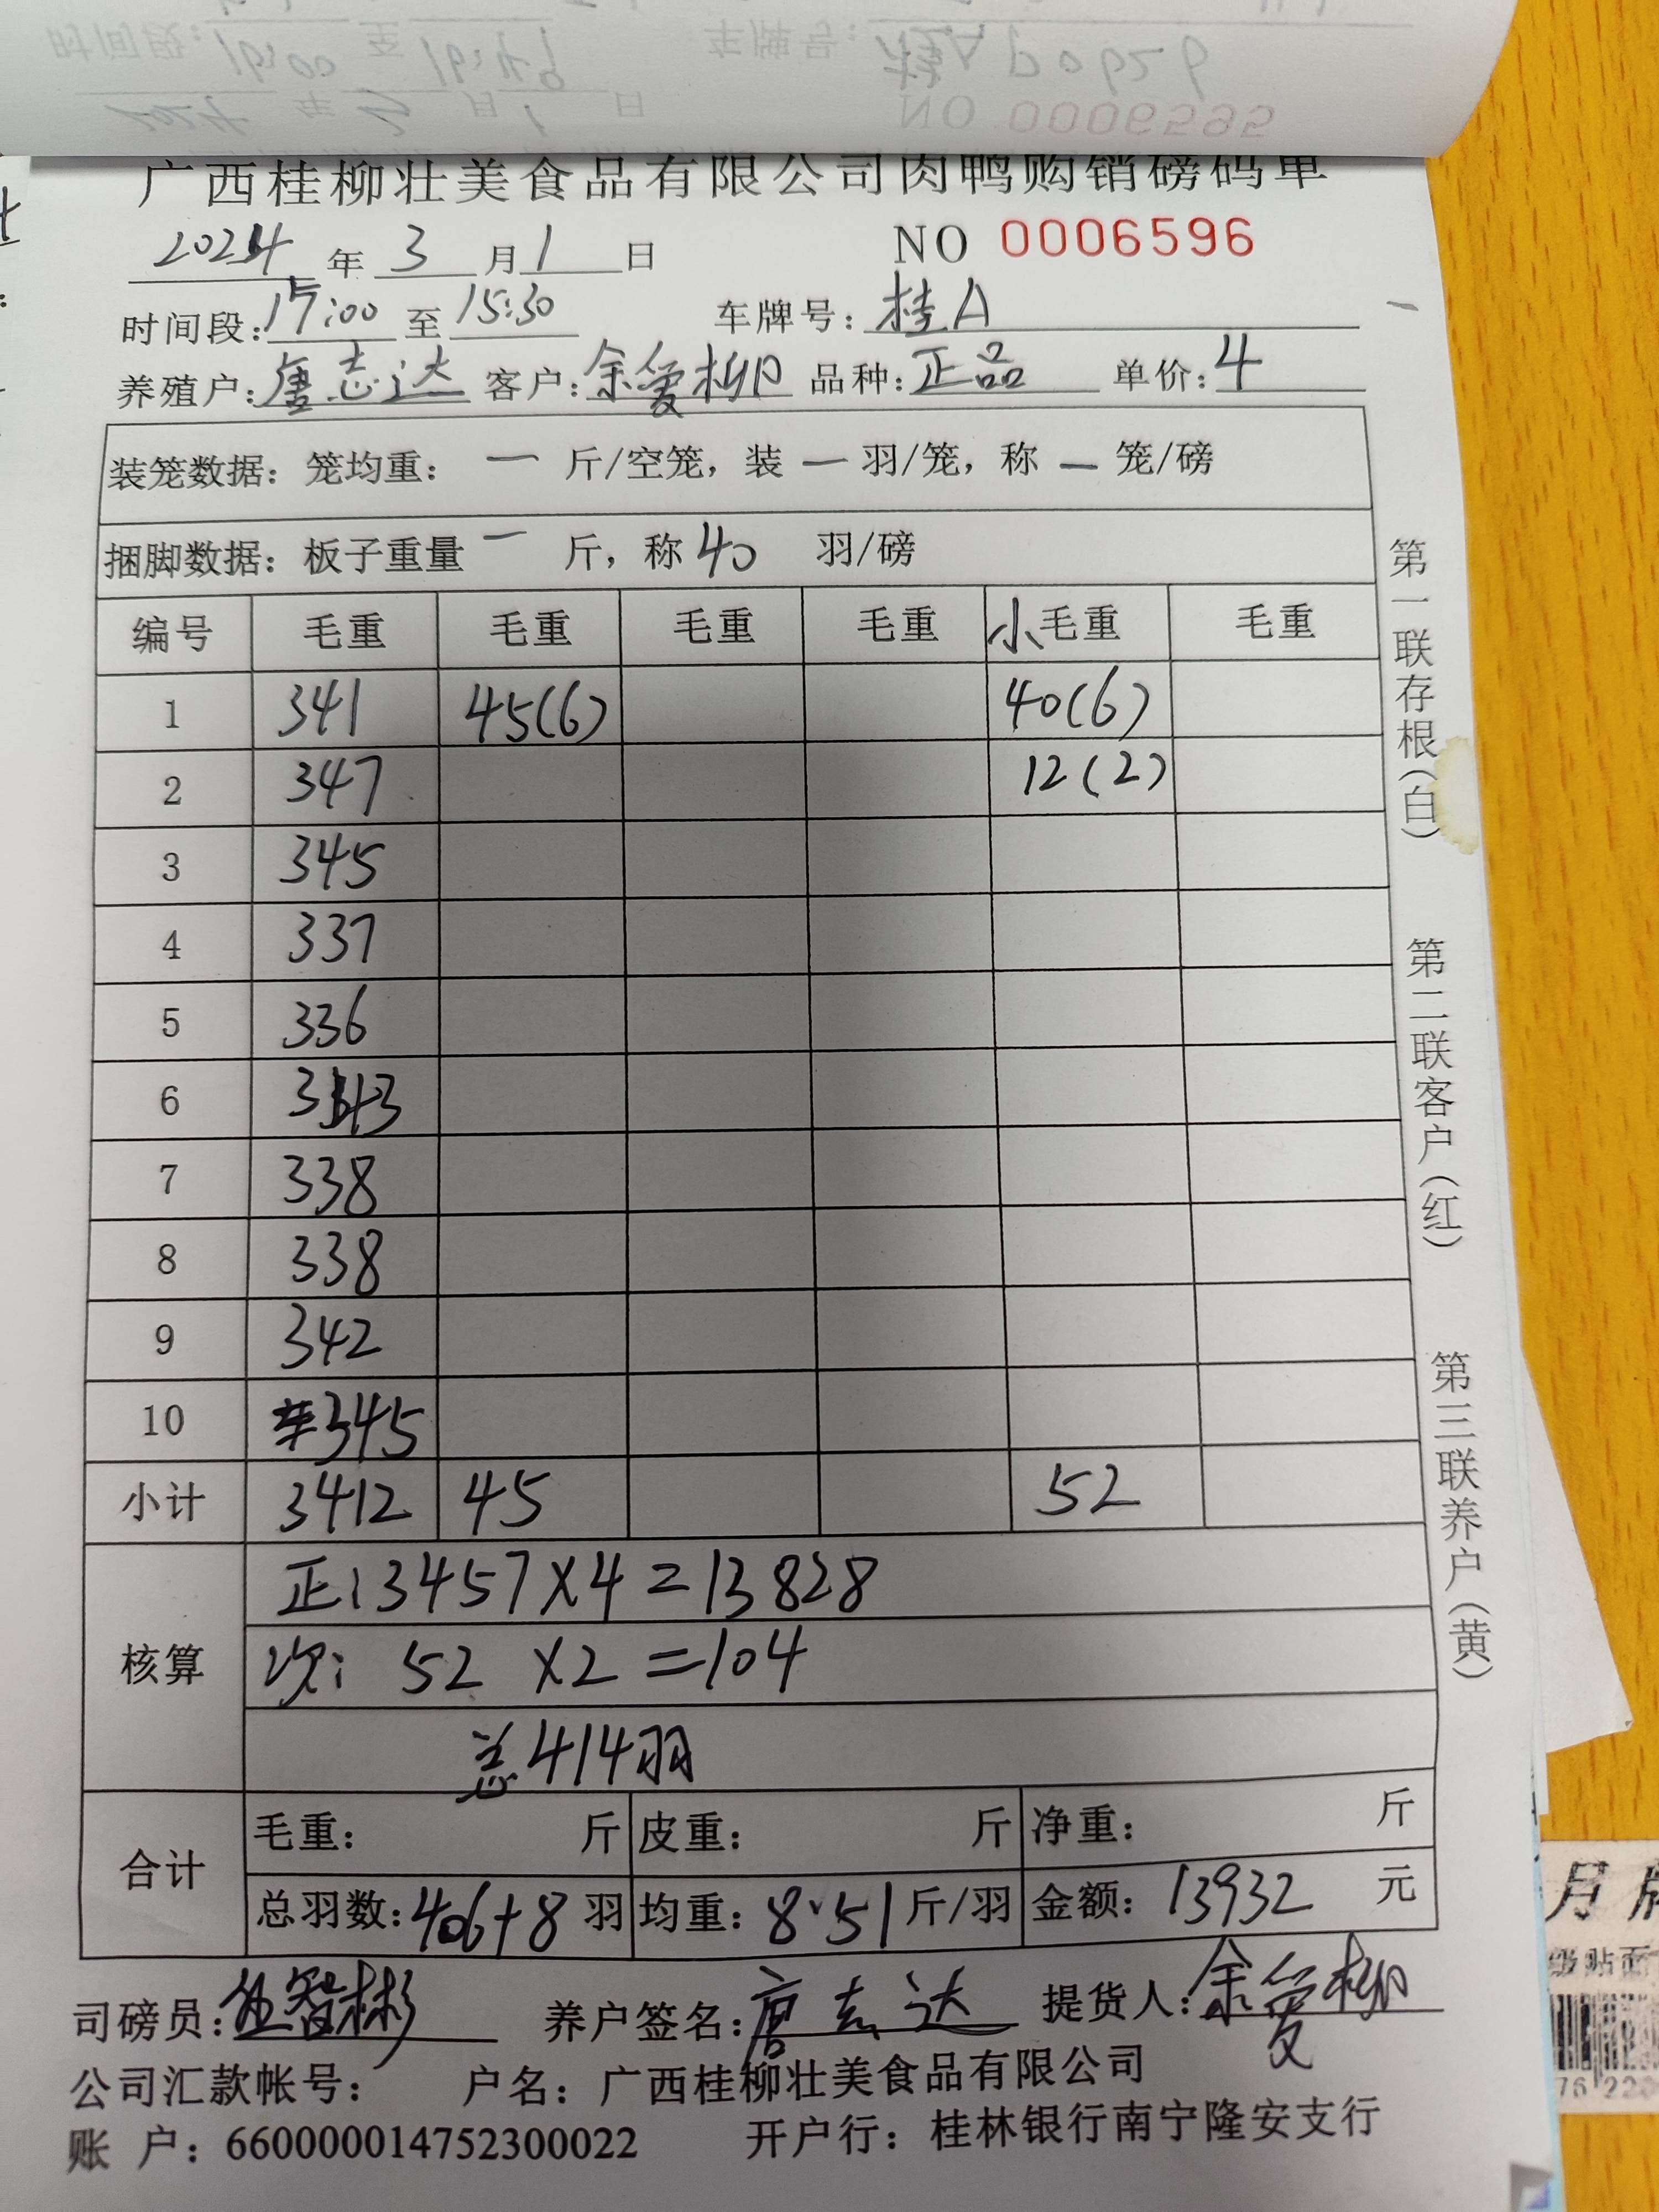 NO 0006595
广西桂柳壮美食品有限公司肉鸭购销磅码单
2024 年 3 月 1 日 NO 0006596
时间段: 15:00 至 15:30 车牌号: 桂A
养殖户: 唐志达 客户: 余爱柳 品种: 正品 单价: 4
装笼数据: 笼均重: — 斤/空笼, 装 — 羽/笼, 称 — 笼/磅
捆脚数据: 板子重量 — 斤, 称 40 羽/磅
编号 毛重 毛重 毛重 毛重 小毛重 毛重
1 341 45(6) 40(6)
2 347 12(2)
3 345
4 337
5 336
6 343
7 338
8 338
9 342
10 345
小计 3412 45 52
核算
正: 3457×4=13828
次: 52 ×2=104
总414羽
合计
毛重: 斤 皮重: 斤 净重: 斤
总羽数: 406+8 羽 均重: 8.51 斤/羽 金额: 13932 元
司磅员: 养户签名: 唐志达 提货人: 余爱柳
公司汇款帐号: 户名: 广西桂柳壮美食品有限公司
账 户: 660000014752300022 开户行: 桂林银行南宁隆安支行
第一联存根(白)
第二联客户(红)
第三联养户(黄)